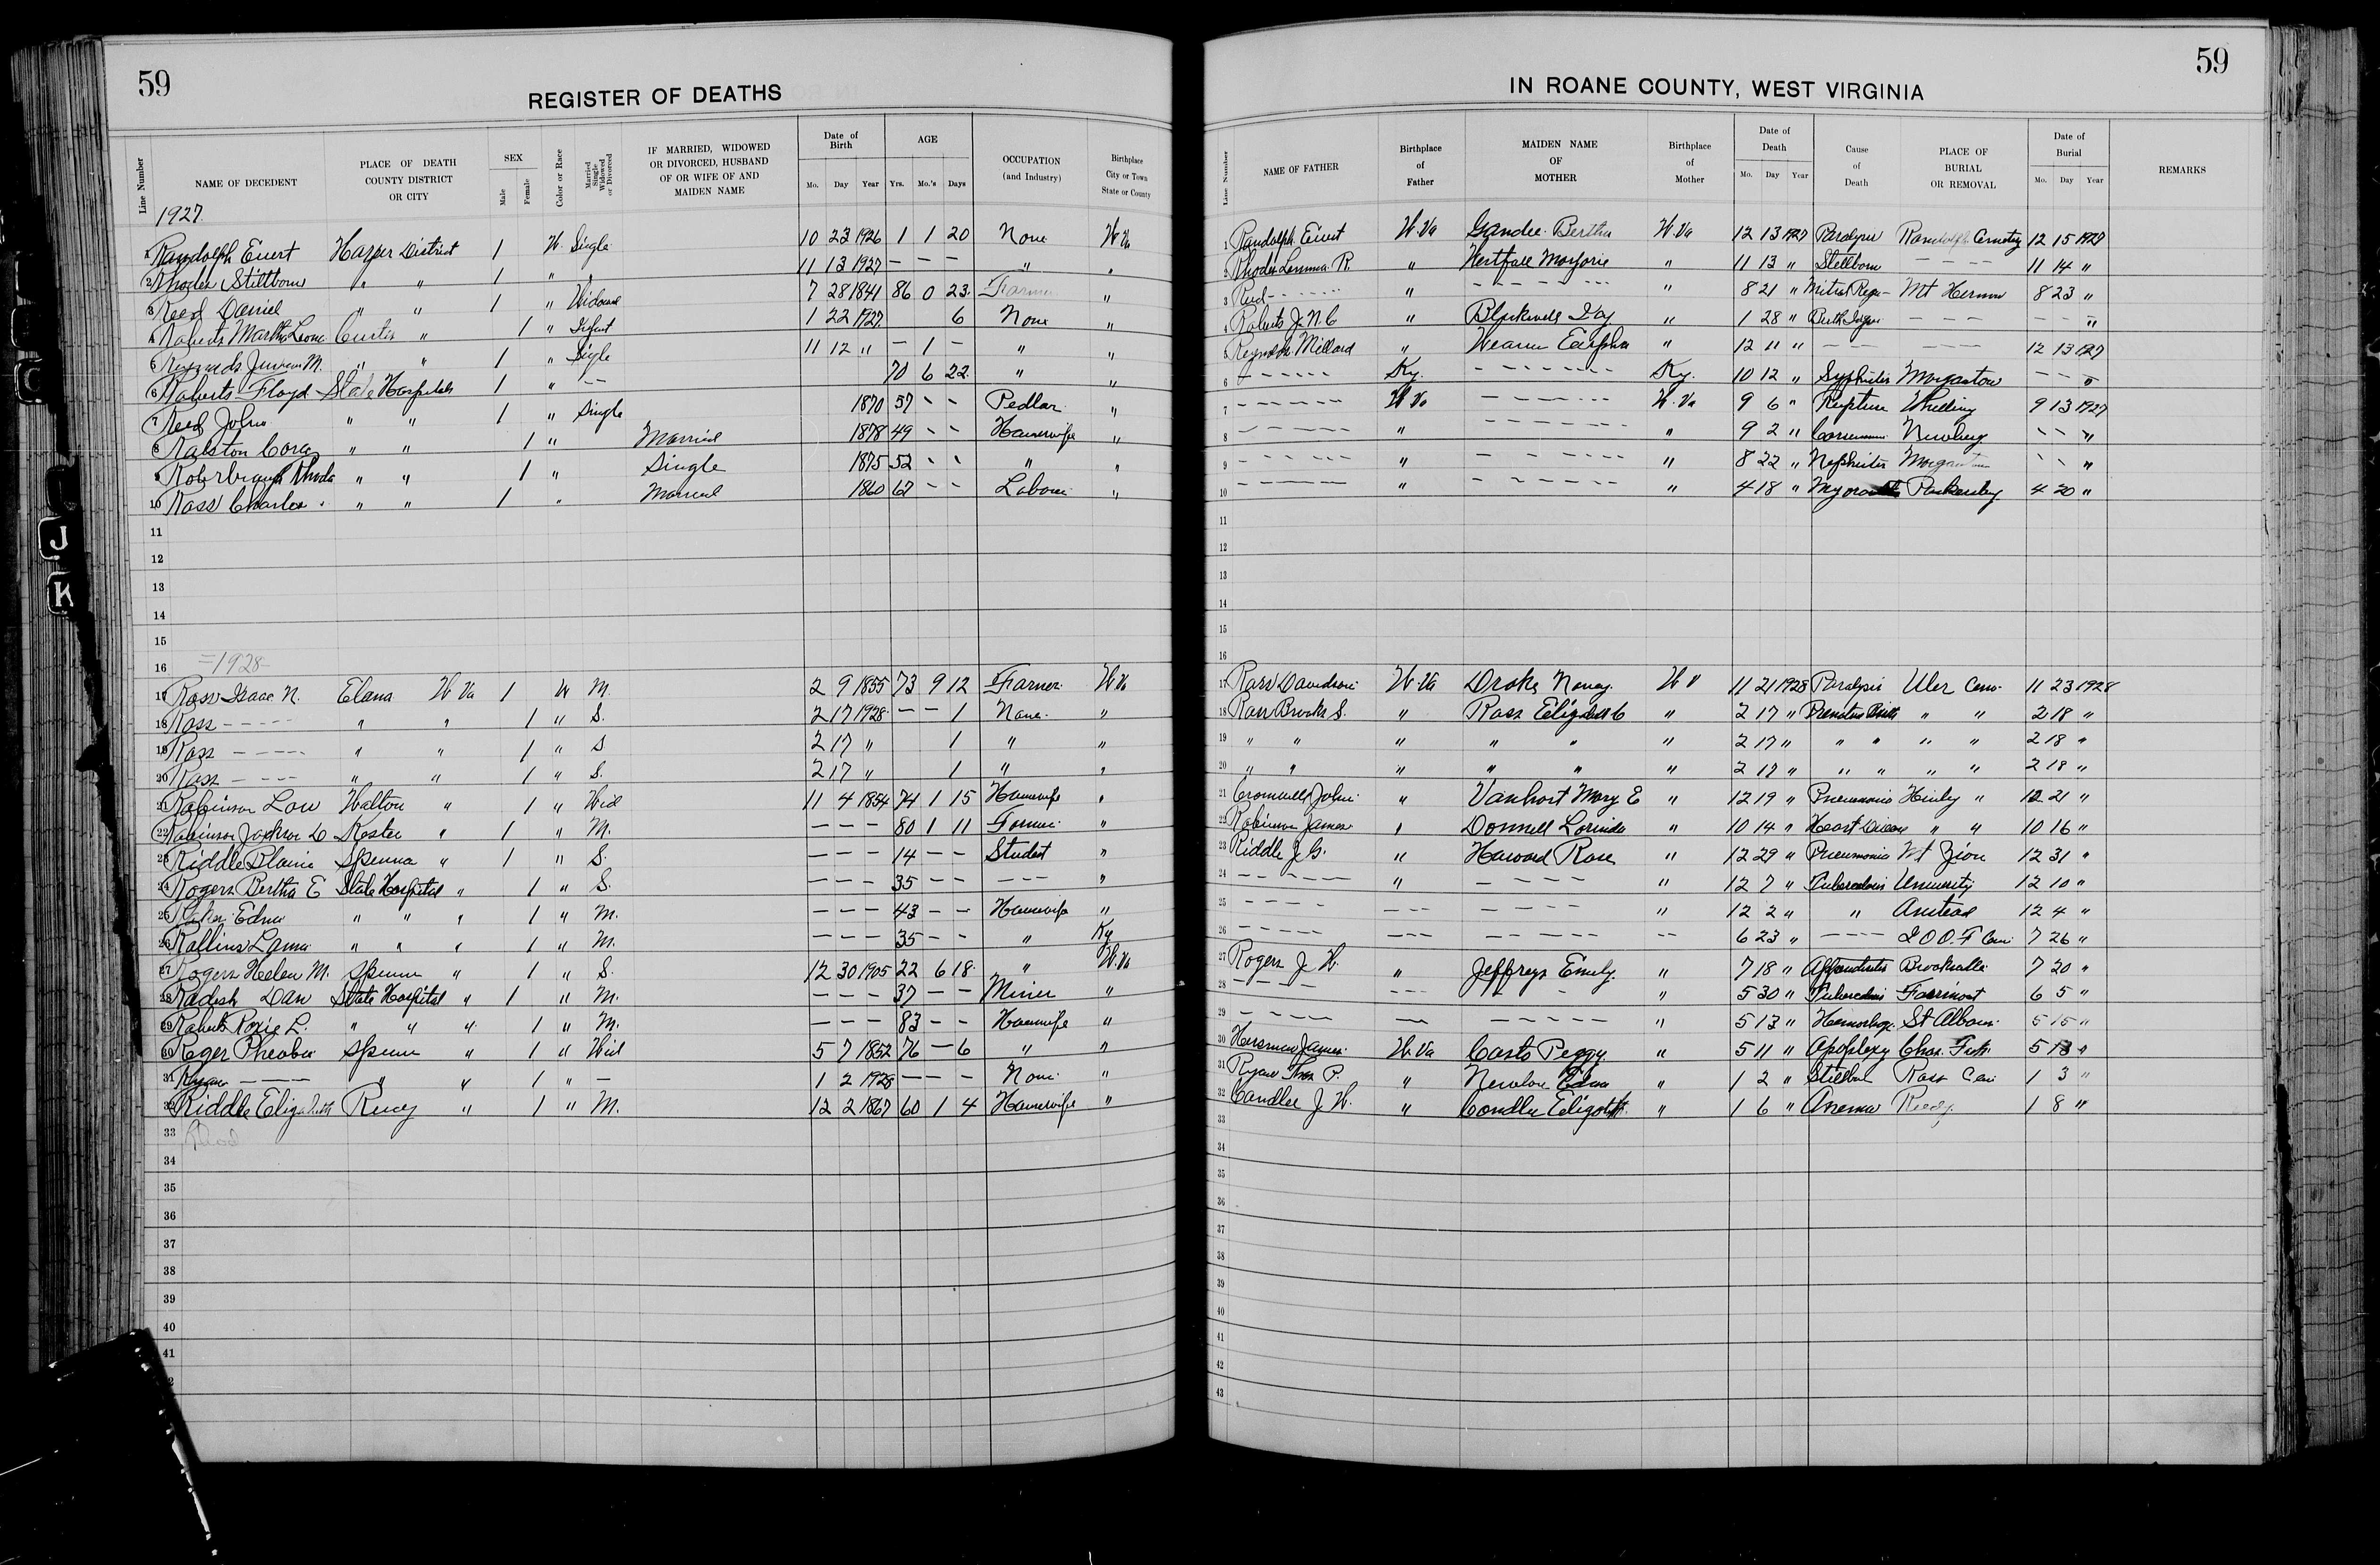 59
REGISTER OF DEATHS
Line Number
NAME OF DECEDENT
PLACE OF DEATH COUNTY DISTRICT OR CITY
SEX Male Female
Color or Race
Married Single Widowed or Divorced
IF MARRIED, WIDOWED OR DIVORCED, HUSBAND OF OR WIFE OF AND MAIDEN NAME
Date of Birth Mo. Day Year
AGE Yrs. Mo.'s Days
OCCUPATION (and Industry)
Birthplace City or Town State or County
1927
1 Randolph Evert Harper District 1 W. Single 10 23 1926 1 1 20 None W Va
2 Rhodes Stillborn " " 1 " 11 13 1927 — — — " "
3 Reed Daniel " " 1 " Widowed 7 28 1841 86 0 23 Farmer "
4 Roberts Martha Leone Curtis " 1 " Infant 1 22 1927 6 None "
5 Reynolds M. " " 1 " Single 11 12 " — 1 — " "
6 Roberts Floyd State Hospital 1 " — — 70 6 22 " "
7 Reed John " " 1 " Single 1870 57 - - Pedlar "
8 Ralston Cora " " 1 " Married 1878 49 - - Housewife "
9 Rohrbraugh Rhoda " " 1 " Single 1875 52 - - " "
10 Ross Charles " " 1 " Married 1860 67 - - Labour "
11
12
13
14
15
16 =1928-
17 Ross Isaac N. Elana W Va 1 W M. 2 9 1855 73 9 12 Farmer W Va
18 Ross - - - - " " 1 " S. 2 17 1928 — — 1 None "
19 Ross - - - - " " 1 " S 2 17 " 1 " "
20 Ross - - - " " 1 " S. 2 17 " 1 " "
21 Robinson Low Walton " 1 " Wid 11 4 1854 74 1 15 Housewife "
22 Robinson Jackson D " 1 " M. — — — 80 1 11 Farmer "
23 Riddle Blaine Spencer " 1 " S. — — — 14 — — Student "
24 Rogers Bertha E State Hospital " 1 " S. — — — 35 — — — — — "
25 Edna " " " 1 " M. — — — 43 — — Housewife "
26 Rollins " " " 1 " M. — — — 35 — - " Ky
27 Rogers Helen M. Spencer " 1 " S. 12 30 1905 22 6 18 " W Va
28 Radish Dan State Hospital " 1 " M. — — — 37 — — Miner "
29 Roberts Roxie L. " " " 1 " M. — — — 83 — - Housewife "
30 Roger Pheobe Spencer " 1 " Wid 5 7 1852 76 — 6 " "
31 Ryan — — — " " 1 " — 1 2 1928 — — — None "
32 Riddle Elizabeth " 1 " M. 12 2 1867 60 1 4 Housewife "
33
34
35
36
37
38
39
40
41
59
IN ROANE COUNTY, WEST VIRGINIA
Line Number
NAME OF FATHER
Birthplace of Father
MAIDEN NAME OF MOTHER
Birthplace of Mother
Date of Death Mo. Day Year
Cause of Death
PLACE OF BURIAL OR REMOVAL
Date of Burial Mo. Day Year
REMARKS
1 Randolph Evert W. Va Gandee Bertha W. Va 12 13 1927 Randolph Cemetery 12 15 1927
2 Rhodes R. " Westfall Marjorie " 11 13 " Stillborn — — — 11 14 "
3 Reed - - - - - " - - - - - " 8 21 " Mitral Regu- Mt Hermon 8 23 "
4 Roberts J. N. C " Blackwell Ivy " 1 28 " Birth — — — — — "
5 Reynolds Millard " " 12 11 " — — — — — 12 13 1927
6 - - - - - Ky. - - - - - Ky. 10 12 " Syphilis Morgantown — — "
7 - - - - - W Va - - - - - W. Va 9 6 " Rupture Wheeling 9 13 1927
8 - - - - - " - - - - - " 9 2 " Newberg - - "
9 - - - - - " - - - - - " 8 22 " Nephritis Morgantown - - "
10 - - - - - " - - - - - " 4 18 " Parkersburg 4 20 "
11
12
13
14
15
16
17 Ross Davidson W. Va Drake Nancy W V 11 21 1928 Paralysis Uler Cem. 11 23 1928
18 Ross Brooks S. " Ross Elizabeth C " 2 17 " Premature Birth " " 2 18 "
19 " " " " " " 2 17 " " " " " 2 18 "
20 " " " " " " 2 17 " " " " " 2 18 "
21 Cromwell John " Vanhort Mary E " 12 19 " Pneumonia " 12 21 "
22 Robinson James " Donnell Lorinda " 10 14 " Heart Disease " " 10 16 "
23 Riddle J. G. " Harvard Rose " 12 29 " Pneumonia Mt Zion 12 31 "
24 - - - - - " - - - - " 12 7 " Tuberculosis University 12 10 "
25 - - - - - - - - - - - " 12 2 " " Ansted 12 4 "
26 - - - - - - - - - - - - - - 6 23 " — — — I.O.O.F Cem. 7 26 "
27 Rogers J W. " Jeffreys Emily " 7 18 " Appendicitis Brooksville 7 20 "
28 - - - - - - - - - " 5 30 " Tuberculosis Fairmont 6 5 "
29 - - - - - — - - - - - " 5 13 " Hemorhage St Albans 5 15 "
30 Hersman James W. Va Casto Peggy " 5 11 " Apoplexy Chas. Fork 5 13 "
31 Ryan Thos P. " Newlon Edna " 1 2 " Stillborn Ross Cem 1 3 "
32 Candler J. W. " Candler Elizabeth " 1 6 " Reedy 1 8 "
33
34
35
36
37
38
39
40
41
42
43
J
K